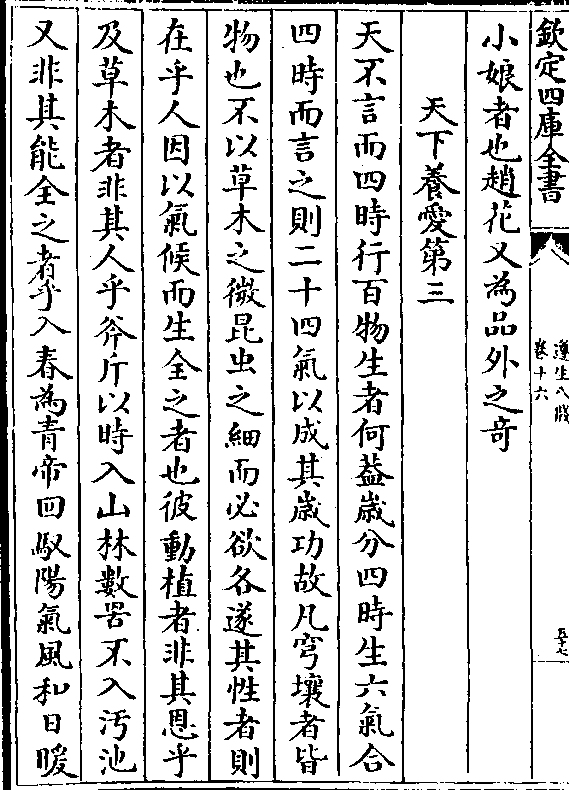 欽定四庫全書
遵生八牋
卷十六
五十七
小娘者也趙花又為品外之竒
天下養愛第三
天不言而四時行百物生者何葢歲分四時生六氣合
四時而言之則二十四氣以成其歲功故凡穹壤者皆
物也不以草木之微昆虫之細而必欲各遂其性者則
在乎人因以氣候而生全之者也彼動植者非其恩乎
及草木者非其人乎斧斤以時入山林數罟不入汚池
又非其能全之者乎入春為青帝回馭陽氣風和日暖